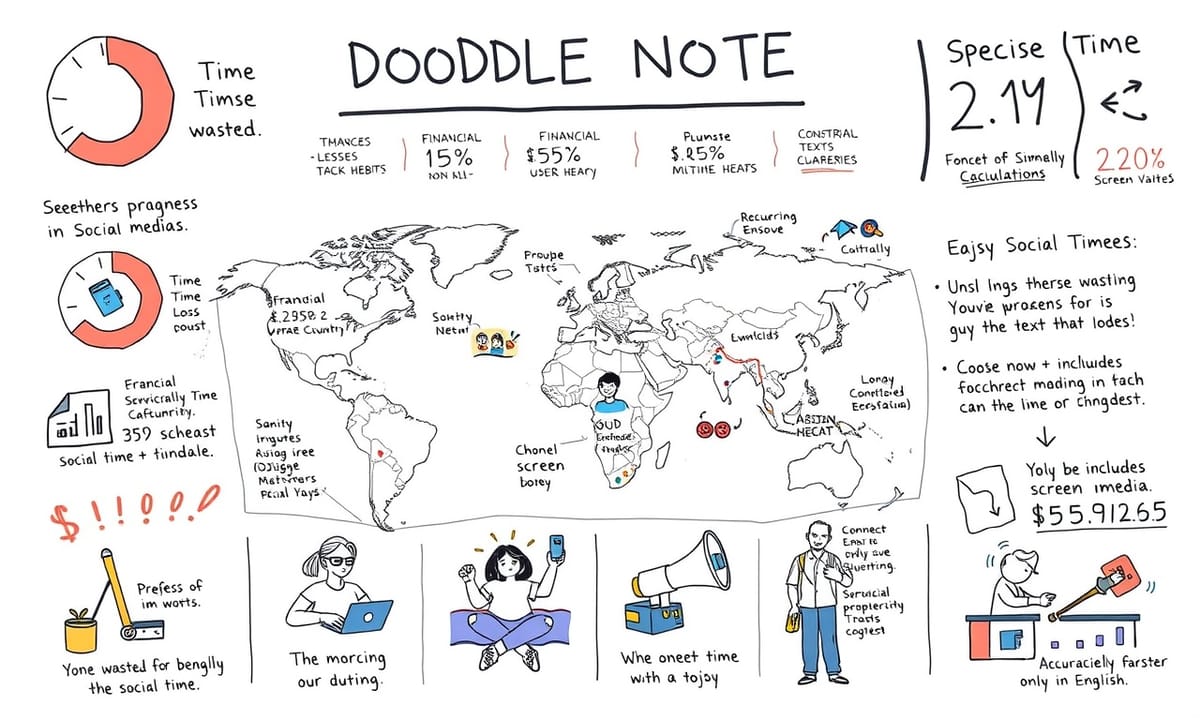 DOODDLE NOTE
Time
Timse
wasted.
THANCES
-LESSES
TACK HEBITS
FINANCIAL
15%
NON ALI-
FINANCIAL
$.55%
USER HEARY
Plunste
$.25%
MITIHE HEATS
CONSTRIAL
TEXTS
CLARERIES
Specise
2.14
Foncet of Sirnelly
Caciulations
Time
220%
Screen Valtes
Seeethers pragness
in Social medias.
Time
Time
Loss
coust
Francial
Servicrally Time
Caftunrity.
359 scheast
Social time + tiindale.
$!!
Prefess of
im worts.
Yone wasted for benglly
the social time.
Frandial
$.2958 2
Country
Sontty
Netat
Proupe
Tstrs
Recurring
Ensove
Caltrally
Evnicids
Lonay
Conttetied
ABSTIN
HECAT
OUD
Chonel
screen
borey
Sanity
Irigutes
Asiog iree
Metorrers
Pcial Yays
Eajsy Social Timees:
• Unsl Ings therse wasting
Youvie wroxens for is
guy the text that lodes!
• Coose now + incluides
focchrect mading in tach
can the lime or Chngdest.
Yoly be includes
screen imedia.
$55.912.65
The morcing
our duting.
Whe oneet time
with a tojoy
Connect
Enst ic
only sve
Sluerting.
Servicial
propterity
Tracts
cogtest
Accuracielly farster
only in English.